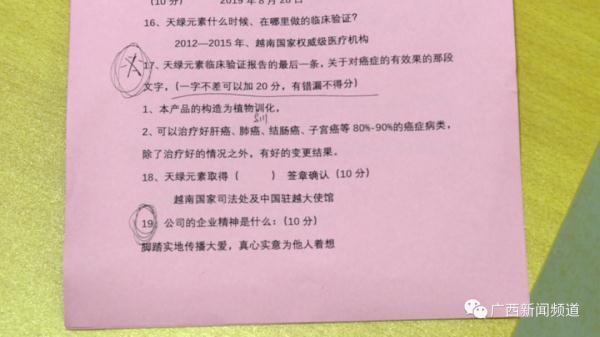 (10 分) 2019 年 8 月 28 日
16、天绿元素什么时候、在哪里做的临床验证?
2012—2015年、越南国家权威级医疗机构
17、天绿元素临床验证报告的最后一条，关于对癌症的有效果的那段
文字，(一字不差可以加 20 分，有错漏不得分)
1、本产品的构造为植物驯化，
训
2、可以治疗好肝癌、肺癌、结肠癌、子宫癌等 80%-90%的癌症病类，
除了治疗好的情况之外，有好的变更结果。
18、天绿元素取得（ ）签章确认（10 分）
越南国家司法处及中国驻越大使馆
19、公司的企业精神是什么:（10 分）
脚踏实地传播大爱，真心实意为他人着想
广西新闻频道